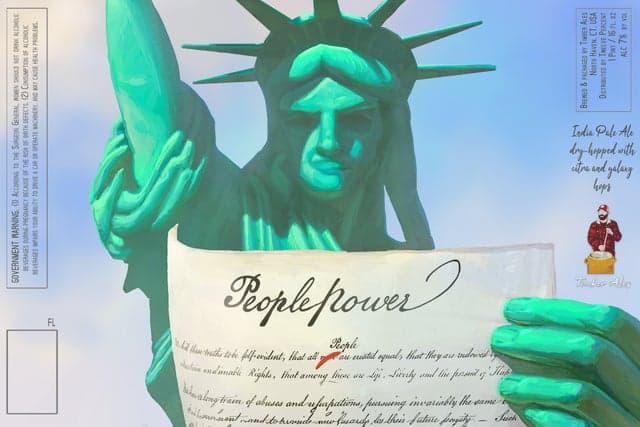 GOVERNMENT WARNING: (1) According to the Surgeon General, women should not drink alcoholic
beverages during pregnancy because of the risk of birth defects. (2) Consumption of alcoholic
beverages impairs your ability to drive a car or operate machinery, and may cause health problems.
FL
Brewed & packaged by Timber Ales
North Haven, CT, USA
Distributed by Twelve Percent
1 Pint / 16 fl. oz
ALC 7% by vol
India Pale Ale
dry-hopped with
citra and galaxy
hops
Timber Ales
People power
People
hold these truths to be self-evident, that all are created equal, that they are endowed
unalienable Rights, that among these are Life, Liberty and the pursuit of Happ
a long train of abuses and usurpations, pursuing invariably the same
and to provide new Guards for their future security. — Such